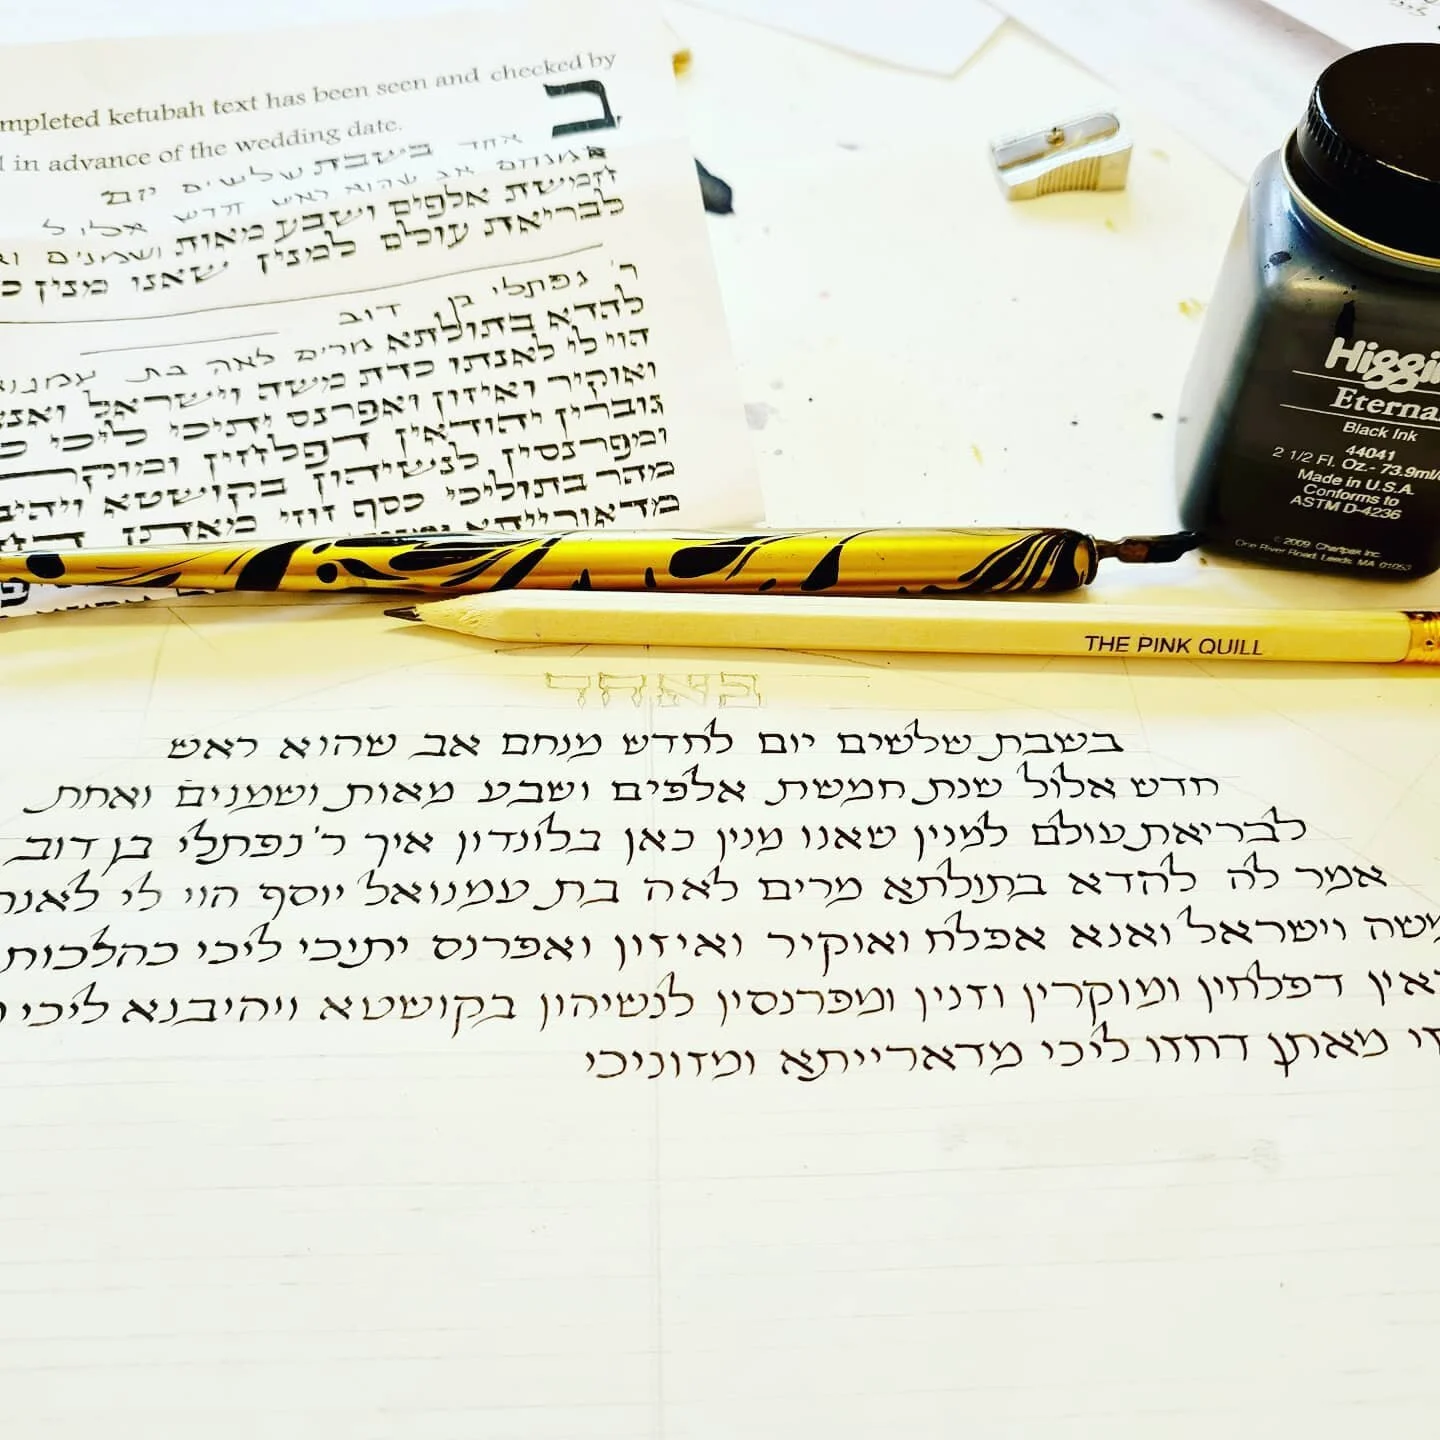 mpleted ketubah text has been seen and checked by
in advance of the wedding date.
ב
אחד בשבת שלשים יום
מנחם אב שהוא ראש חדש אלול
חמשת אלפים ושבע מאות ושמנים
לבריאת עולם למנין שאנו מנין
ר' נפתלי בן דוב
להדא בתולתא מרים לאה בת
הוי לי לאנתו כדת משה וישראל ואנא
ואוקיר ואיזון ואפרנס יתיכי ליכי
גוברין יהודאין דפלחין ומוקרין
ומפרנסין לנשיהון בקושטא ויהיב
מהר בתוליכי כסף זוזי מאתן
מדאורייתא
Higgin
Eterna
Black Ink
44041
2 1/2 Fl. Oz.- 73.9ml
Made in U.S.A.
Conforms to
ASTM D-4236
© 2009 Chartpak Inc.
One River Road, Leeds, MA 01053
THE PINK QUILL
באחד
בשבת שלשים יום לחדש מנחם אב שהוא ראש
חדש אלול שנת חמשת אלפים ושבע מאות ושמנים ואחת
לבריאת עולם למנין שאנו מנין כאן בלונדון איך ר' נפתלי בן דוב
אמר לה להדא בתולתא מרים לאה בת עמנואל יוסף הוי לי לאנת
משה וישראל ואנא אפלח ואוקיר ואיזון ואפרנס יתיכי ליכי כהלכות
דאין דפלחין ומוקרין וזנין ומפרנסין לנשיהון בקושטא ויהיבנא ליכי
זי מאתן דחזו ליכי מדארייתא ומזוניכי